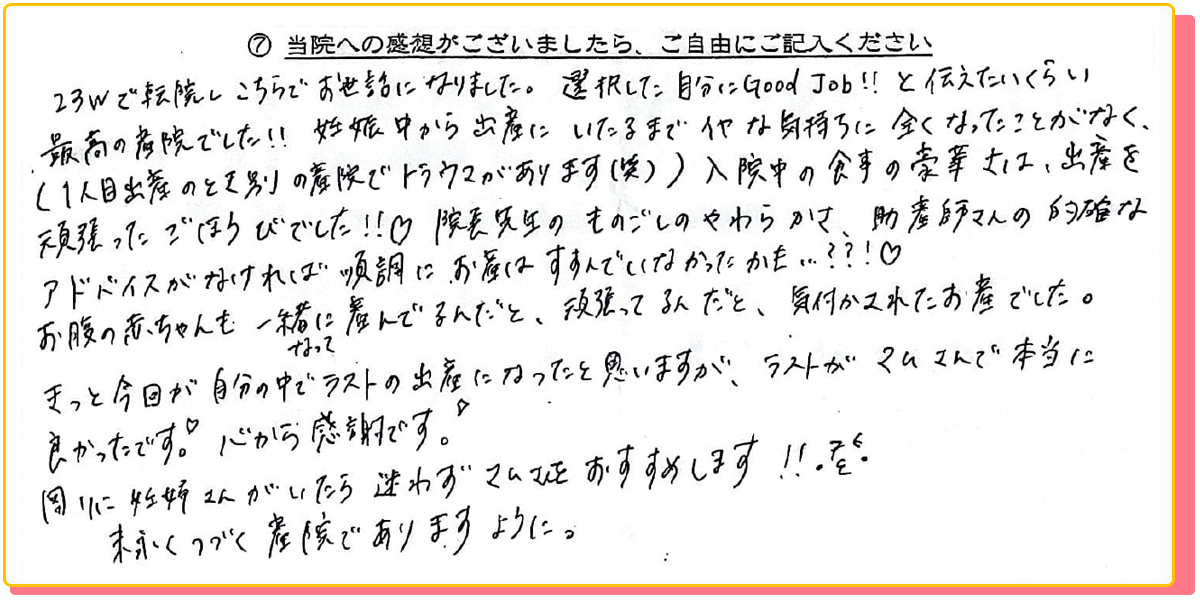 ⑦ 当院への感想がございましたら、ご自由にご記入ください
23Wで転院しこちらでお世話になりました。選択した自分にGood Job!!と伝えたいくらい
最高の産院でした!! 妊娠中から出産にいたるまでイヤな気持ちに全くなったことがなく、
(1人目出産のとき別の産院でトラウマがあります(笑)) 入院中の食事の豪華さは、出産を
頑張ったごほうびでした!!♡ 院長先生のものごしのやわらかさ、助産師さんの的確な
アドバイスがなければ順調にお産はすすんでいなかったかも…??!♡
お腹の赤ちゃんも一緒に産んでるんだと、頑張ってるんだと、気付かされたお産でした。
なって
きっと今回が自分の中でラストの出産になったと思いますが、ラストがマムさんで本当に
良かったです。♡ 心から感謝です。♡
周りに妊婦さんがいたら迷わずマムさんをおすすめします!!
末永くつづく産院でありますように。